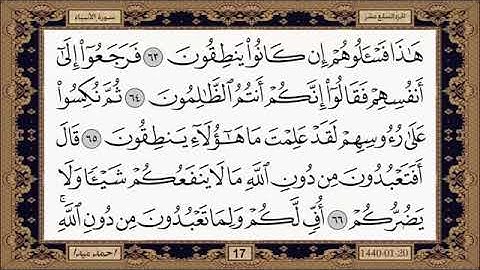 سورة الأنبياء
الجزء السابع عشر
هَٰذَا فَسْـَٔلُوهُمْ إِن كَانُوا۟ يَنطِقُونَ ٦٣ فَرَجَعُوٓا۟ إِلَىٰٓ
أَنفُسِهِمْ فَقَالُوٓا۟ إِنَّكُمْ أَنتُمُ ٱلظَّٰلِمُونَ ٦٤ ثُمَّ نُكِسُوا۟
عَلَىٰ رُءُوسِهِمْ لَقَدْ عَلِمْتَ مَا هَٰٓؤُلَآءِ يَنطِقُونَ ٦٥ قَالَ
أَفَتَعْبُدُونَ مِن دُونِ ٱللَّهِ مَا لَا يَنفَعُكُمْ شَيْـًٔا وَلَا
يَضُرُّكُمْ ٦٦ أُفٍّ لَّكُمْ وَلِمَا تَعْبُدُونَ مِن دُونِ ٱللَّهِ ۖ
17
1440-01-20